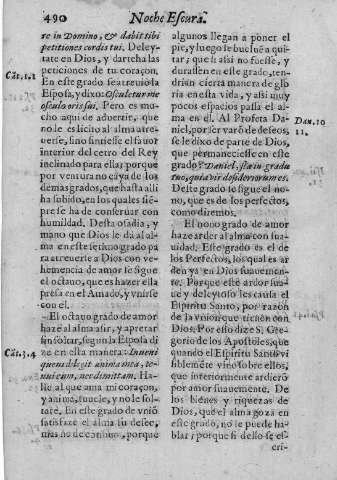 490 Noche Escura.
re in Domino, & dabit tibi
petitiones cordis tui. Deley-
tate en Dios, y dartehà las
peticiones de tu coraçon.
Cãt. 1. 1
En este grado se atreuiò la
Esposa, y dixo: Osculetur me
osculo oris sui. Pero es mu-
cho aqui de aduertir, que
no le es licito al alma atre-
uerse, sino sintiesse el fauor
interior del cetro del Rey
inclinado para ella; porque
por ventura no caya de los
demas grados, que hasta alli
ha subido, en los quales siẽ-
pre se ha de conseruar con
humildad. Desta osadia, y
mano que Dios le dà al al-
ma en este septimo grado pa
ra atreuerse a Dios con ve-
hemencia de amor se sigue
el octauo, que es hazer ella
presa en el Amado, y vnirse
con el.
El octauo grado de amor
haze al alma asir, y apretar
sin soltar, segun la Esposa di
Cãt. 3. 4
ze en esta manera: Inueni
quem diligit anima mea, te-
nui eum, nec dimittam. Ha-
llè al que ama mi coraçon,
y anima, tuuele, y no le sol-
tarè. En este grado de vniõ
satisfaze el alma su deseo,
mas no de continuo, porque
algunos llegan a poner el
pie, y luego se bueluẽ a qui-
tar; que si assi no fuesse, y
durassen en este grado, ten-
drian cierta manera de glo
ria en esta vida, y assi muy
pocos espacios passa el al-
ma en el. Al Profeta Da-
Dan. 10
niel, por ser varõ de deseos,
11.
se le dixo de parte de Dios,
que permaneciesse en este
grado: Daniel, sta in gradu
tuo, quia vir desideriorum es.
Deste grado se sigue el no-
no, que es de los perfectos,
como diremos.
El nono grado de amor
haze arder al alma con sua-
uidad. Este grado es el de
los Perfectos, los quales ar
den ya en Dios suauemen-
te. Porque este ardor sua-
ue y deleytoso les causa el
Espiritu Santo, por razon
de la vniõ que tienen con
Dios. Por esso dize S. Gre-
gorio de los Apostoles, que
quando el Espiritu Santo vi
siblemẽte vino sobre ellos,
que interiormente ardierõ
por amor suauemente. De
los bienes y riquezas de
Dios, que el alma goza en
este grado, no se puede ha-
blar; porque si dello se es-
cri-